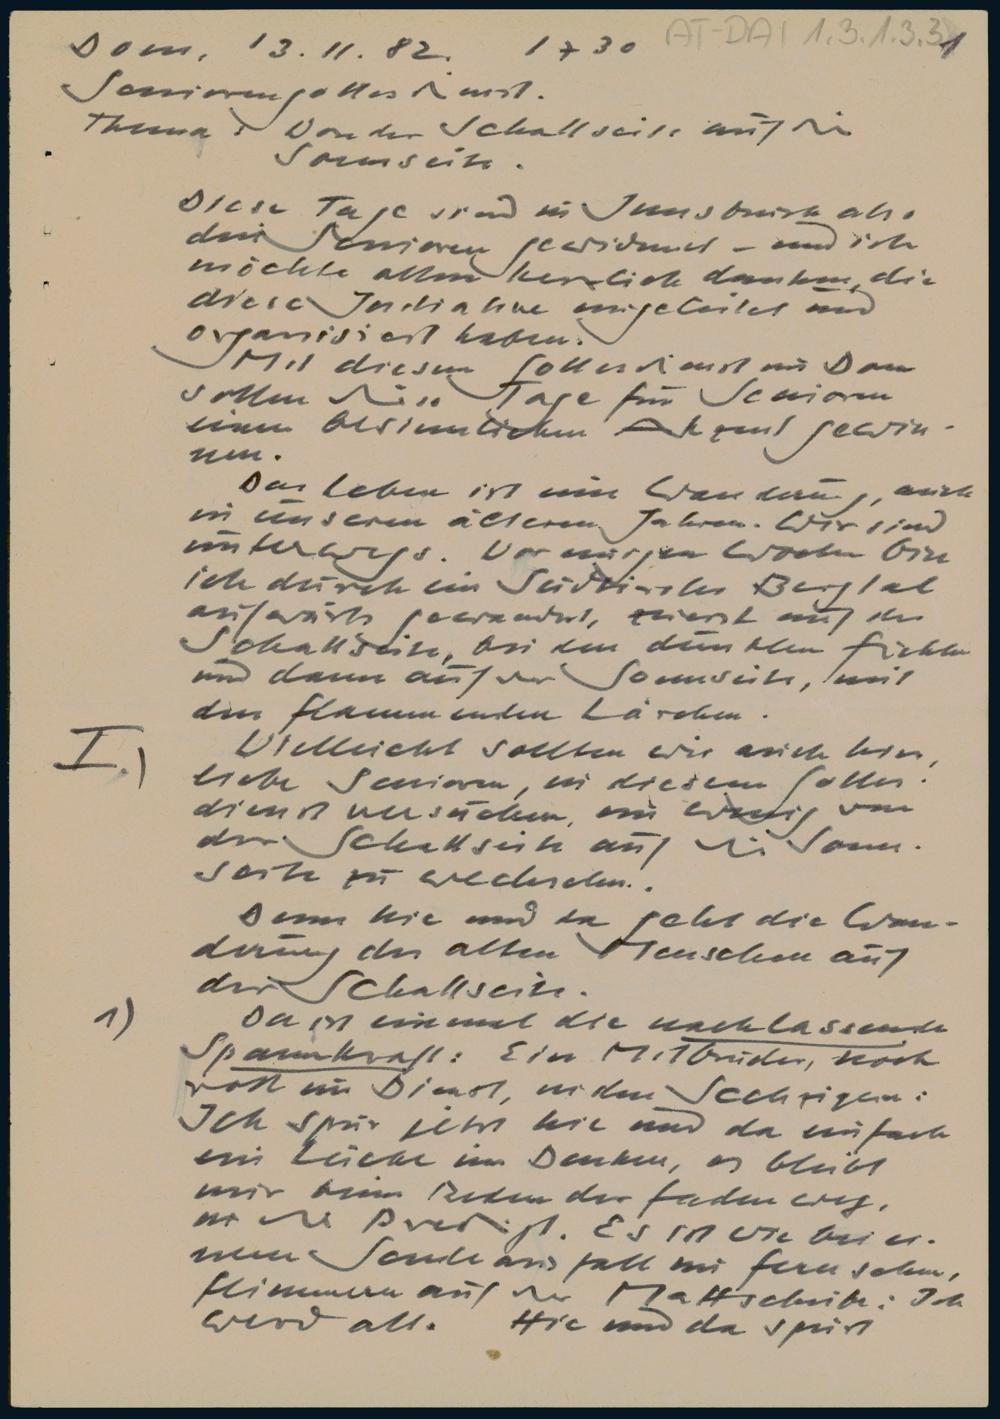 AT-DAI 1.3.1.3.3 1
Dom, 13.11.82. 1730
Seniorengottesdienst.
Thema: Von der Schattseite auf die
Sonnseite.
Diese Tage sind in Innsbruck also
den Senioren gewidmet – und ich
möchte allen herzlich danken, die
diese Initiative eingeleitet und
organisiert haben.
Mit diesem Gottesdienst im Dom
sollen diese Tage für Senioren
einen besinnlichen Akzent gewin-
nen.
Das Leben ist eine Wanderung, auch
in unseren älteren Jahren. Wir sind
unterwegs. Vor einigen Wochen bin
ich durch ein Südtiroler Bergtal
aufwärts gewandert, zuerst auf der
Schattseite, bei den dunklen Fichten
und dann auf der Sonnseite, mit
den flammenden Lärchen.
I.) Vielleicht sollten wir auch hier,
liebe Senioren, in diesem Gottes-
dienst versuchen, ein wenig von
der Schattseite auf die Sonn-
seite zu wechseln.
Denn hie und da geht die Wan-
derung des alten Menschen auf
der Schattseite.
1) Da ist einmal die nachlassende
Spannkraft: Ein Mitbruder, noch
voll im Dienst, in den Sechzigern:
Ich spür jetzt hie und da einfach
ein Lücke im Denken, es bleibt
mir beim Reden der Faden weg,
in der Predigt. Es ist wie bei ei-
nem Sendeausfall im Fernsehen,
flimmern auf der Mattscheibe: Ich
werd alt. Hie und da spürt